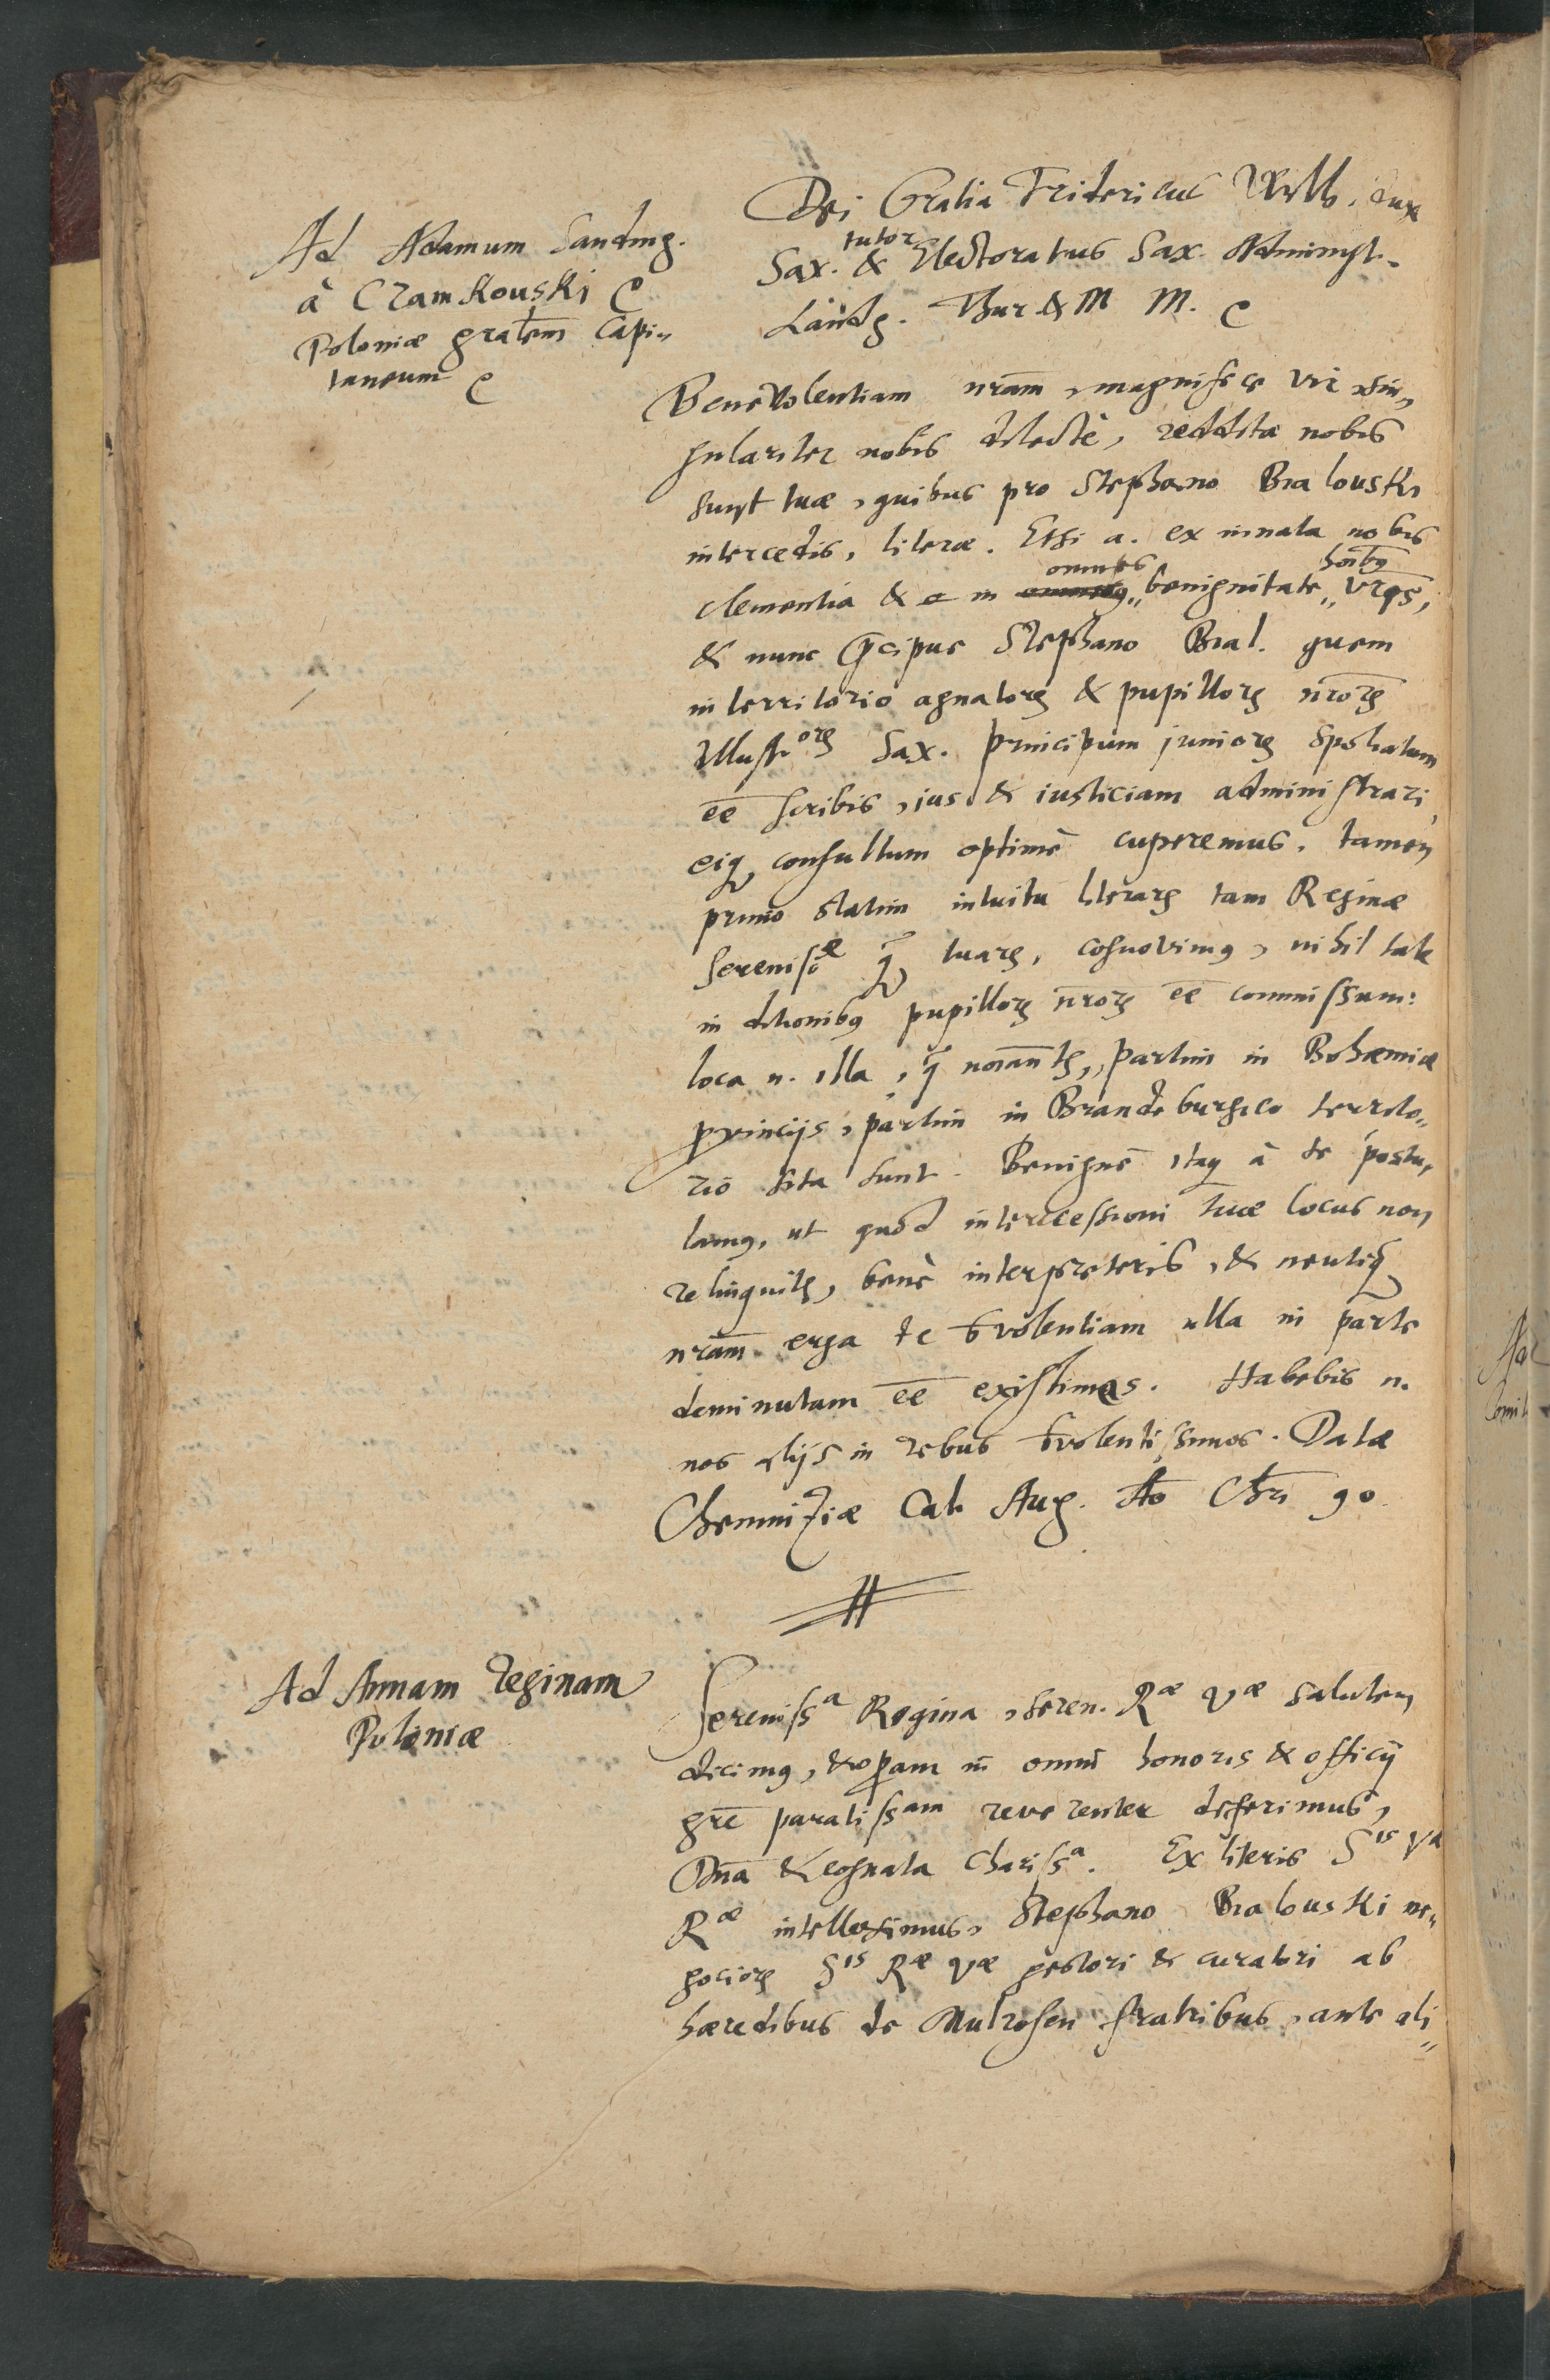 Ad Adamum Sanding.
à Czamkouski ꝛc
Poloniæ gralem̄ Capi„
taneum ꝛc
Dei Gratia Fridericus Wilh. dux
Sax. tutor & Electoratus Sax. Administ.
Landg. Thur & M M. ꝛc
Benevolentiam nram̄, magnifice vir, sin„
gulariter nobis dilecte, redditæ nobis
sunt tuæ, quibus pro Stephano Bialouski
intercedis, literæ. Etsi a. ex innata nobis
clementia & in omnes benignitate hoībꝰ vr̄qs,
& nunc p̄cipue Stephano Bial. quem
in territorio agnatorꝝ & pupillorꝝ nr̄orꝝ
Illustorꝝ Sax. principum juniorꝝ spoliatum
ēe scribis, ius & iusticiam administrari,
eiqꝫ consultum optimè cuperemus. tamen
primo statim intuitu literarꝝ tam Reginæ
serenissæ qꝫ̄ tuarꝝ, cognovimꝰ, nihil tale
in ditionibꝰ pupillorꝝ nr̄orꝝ ēe commissum:
loca n. illa, q̄ noīantꝛ, partim in Bohæmiæ
ꝓvincijs, partim in Brandeburgico territo„
rio sita sunt. Benignè itaqꝫ à te postu„
lamꝰ, ut quod intercessioni tuæ locus non
relinquitꝛ, benè interpreteris, & neutiqꝫ̄
nram̄ erga te bn̄volentiam ulla in parte
deminutam ēe existimes. Habebis n.
nos alijs in rebus bn̄volentissimos. Datæ
Chemnitziæ Cal. Aug. Aō Chr̄i 90.
Ad Annam Reginam
Poloniæ
Serenissa Regina, seren. Ræ Væ salutem
dicimꝰ, & oꝑam in omni honoris & officij
gn̄e paratissam reverenter deferimus,
Dn̄a & cognata charissa. Ex literis Sis Væ
Ræ intelleximus, Stephano Bialouski ne„
gociorꝝ Sis Ræ Væ gestori & curatori ab
hæredibus de Mulrosen fratribus, ante ali„